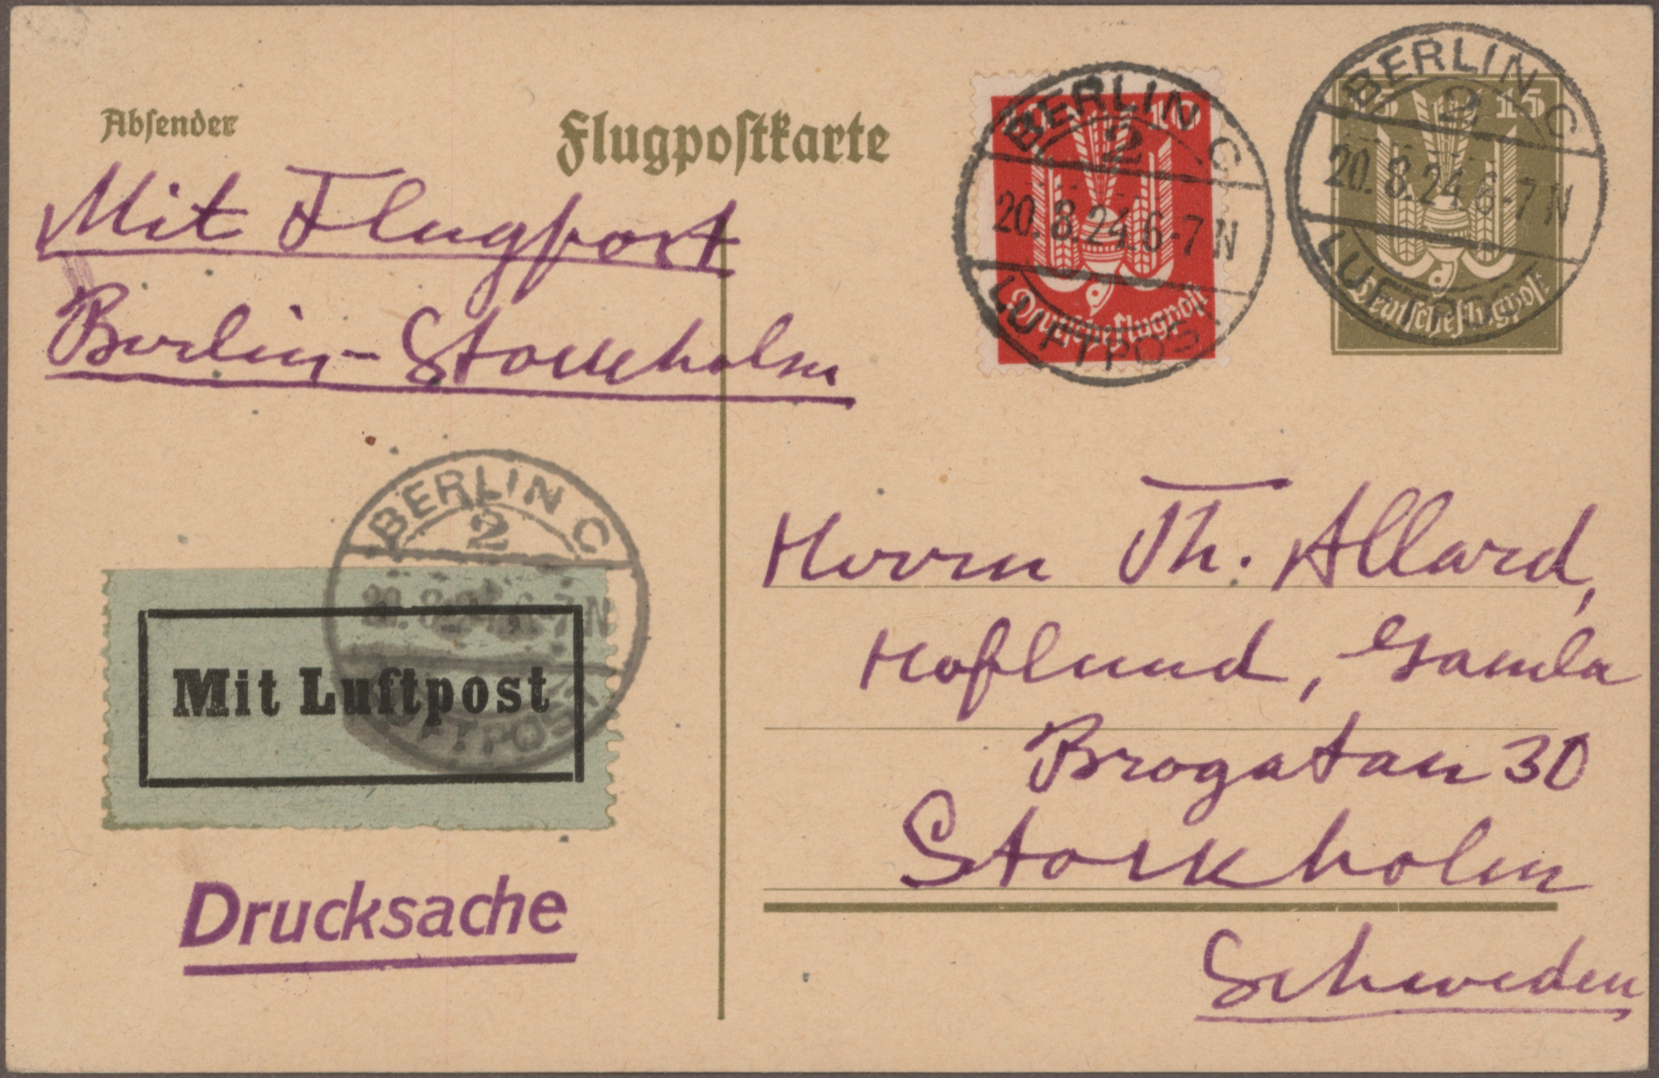 Absender
Flugpostkarte
Mit Flugpost
Berlin-Stockholm
10
BERLIN C
2
20.8.24.6-7N
LUFTPOST
Deutsche Flugpost
15 15
BERLIN C
2
20.8.24.6-7N
LUFTPOST
Deutsche Flugpost
BERLIN C
2
20.8.24.6-7N
LUFTPOST
Mit Luftpost
Drucksache
Herrn Th. Allard,
Hoflund, Gamla
Brogatan 30
Stockholm
Schweden